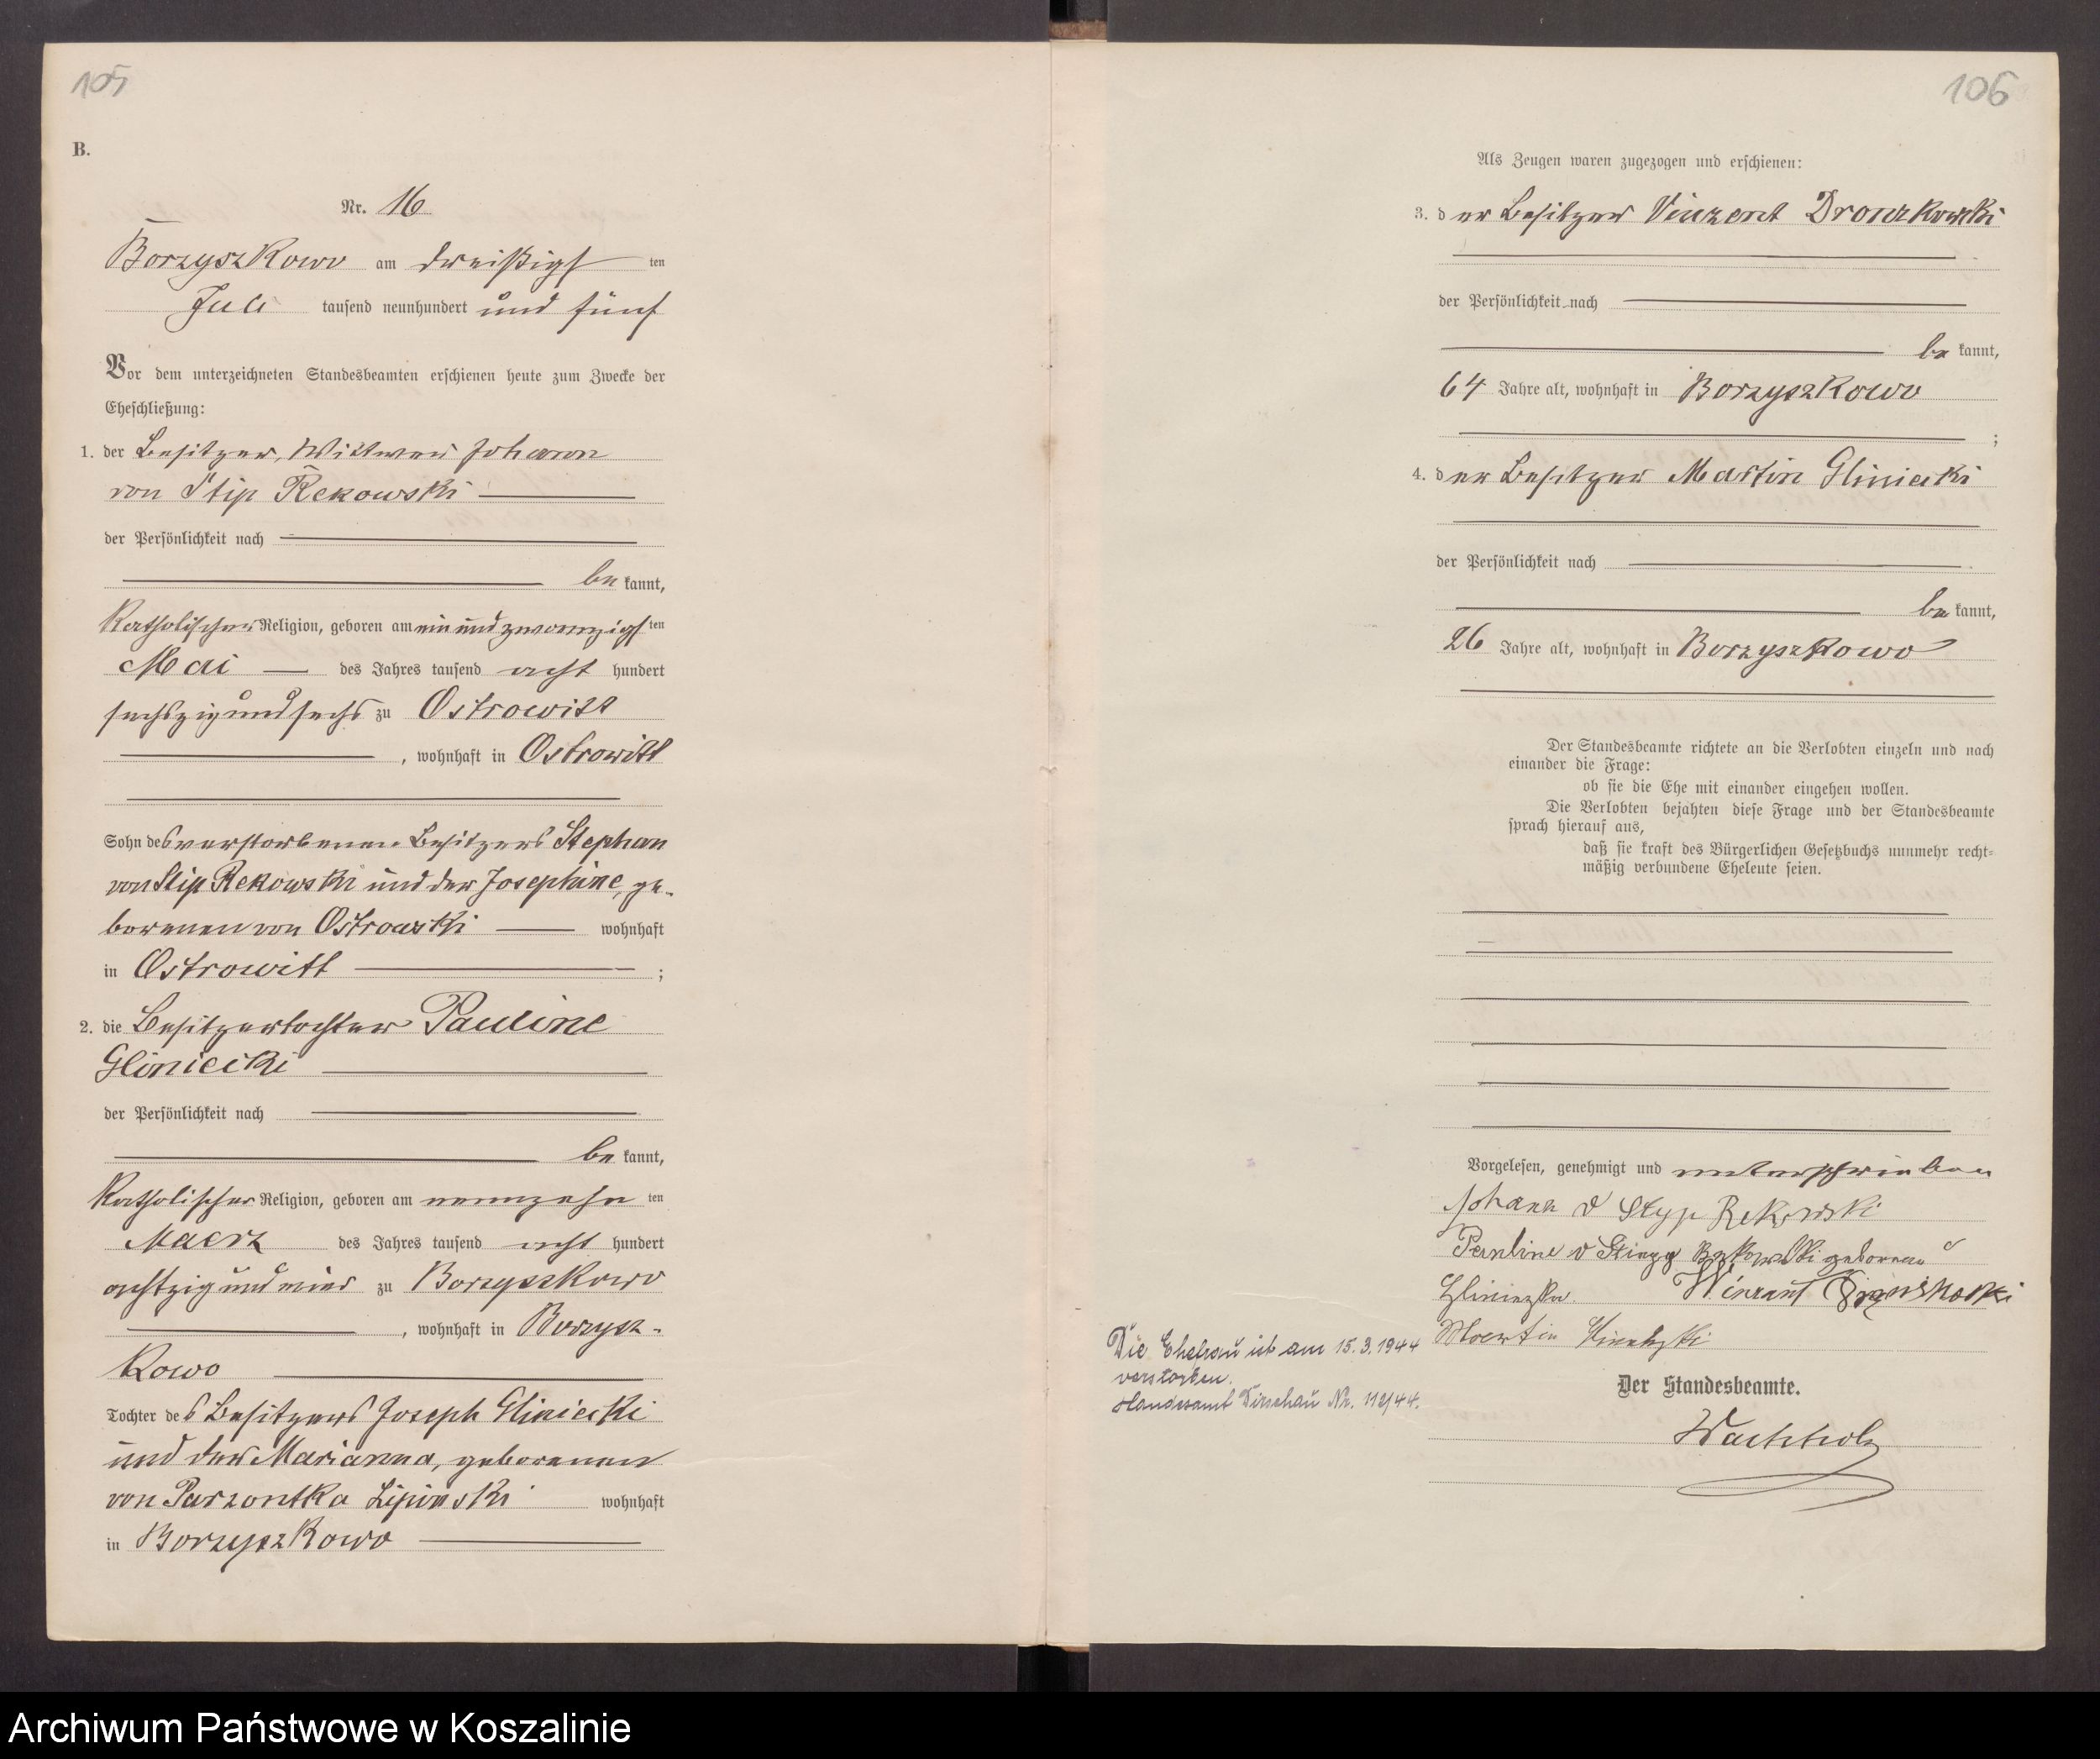 105
B.
Nr. 16
Borzyszkowo am dreißigsten
Juli tausend neunhundert und fünf
Vor dem unterzeichneten Standesbeamten erschienen heute zum Zwecke der
Eheschließung:
1. der Besitzer, Wittwer Johann
von Stip Rekowski
der Persönlichkeit nach
be kannt,
Katholischer Religion, geboren am ein und zwanzigsten
Mai des Jahres tausend acht hundert
sechszig und sechs zu Ostrowitt
, wohnhaft in Ostrowitt
Sohn des verstorbenen Besitzers Stephan
von Stip Rekowski und der Josephine, ge-
borenen von Ostrowski wohnhaft
in Ostrowitt ;
2. die Besitzertochter Pauline
Gliniecki
der Persönlichkeit nach
be kannt,
Katholischer Religion, geboren am neunzehn ten
Maerz des Jahres tausend acht hundert
achtzig und vier zu Borzyszkowo
, wohnhaft in Borzysz-
kowo
Tochter des Besitzers Joseph Gliniecki
und der Marianna, geborenen
von Parzontka Lipinski wohnhaft
in Borzyszkowo
106
Als Zeugen waren zugezogen und erschienen:
3. der Besitzer Vinzent Dronzkowski
der Persönlichkeit nach
be kannt,
64 Jahre alt, wohnhaft in Borzyszkowo
;
4. der Besitzer Martin Gliniecki
der Persönlichkeit nach
be kannt,
26 Jahre alt, wohnhaft in Borzyszkowo
Der Standesbeamte richtete an die Verlobten einzeln und nach
einander die Frage:
ob sie die Ehe mit einander eingehen wollen.
Die Verlobten bejahten diese Frage und der Standesbeamte
sprach hierauf aus,
daß sie kraft des Bürgerlichen Gesetzbuchs nunmehr recht-
mäßig verbundene Eheleute seien.
Vorgelesen, genehmigt und unterschrieben
Johann v Styp Rekowski
Pauline v Rekowski geborene
Winzent
Martin
Die Ehefrau ist am 15.3.1944
verstorben.
Standesamt Dirschau Nr. 112/44.
Der Standesbeamte.
Wachholz
Archiwum Państwowe w Koszalinie